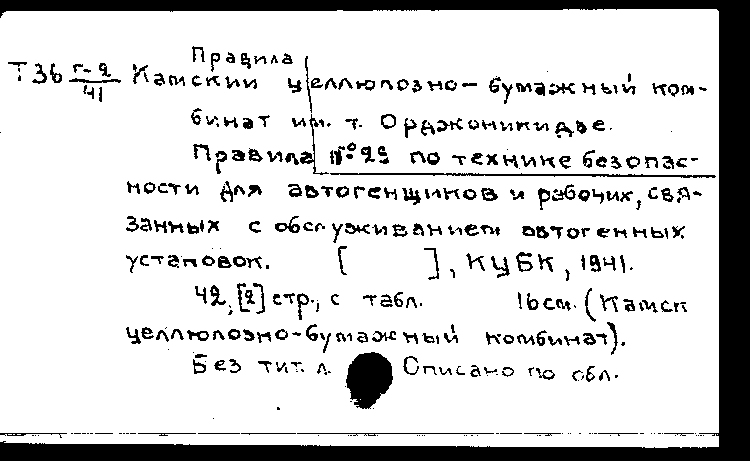 Правила
Т36 г-2/41 Камский целлюлозно-бумажный ком-
бинат им. т. Орджоникидзе.
Правила №25 по технике безопас-
ности для автогенщиков и рабочих, свя-
занных с обслуживанием автогенных
установок. [ ], КЦБК, 1941.
42, [2] стр., с табл. 16см. (Камск
целлюлозно-бумажный комбинат).
Без тит. л. Описано по обл.